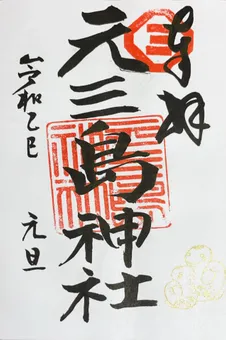 奉拝
元三島神社
令和乙巳 元旦